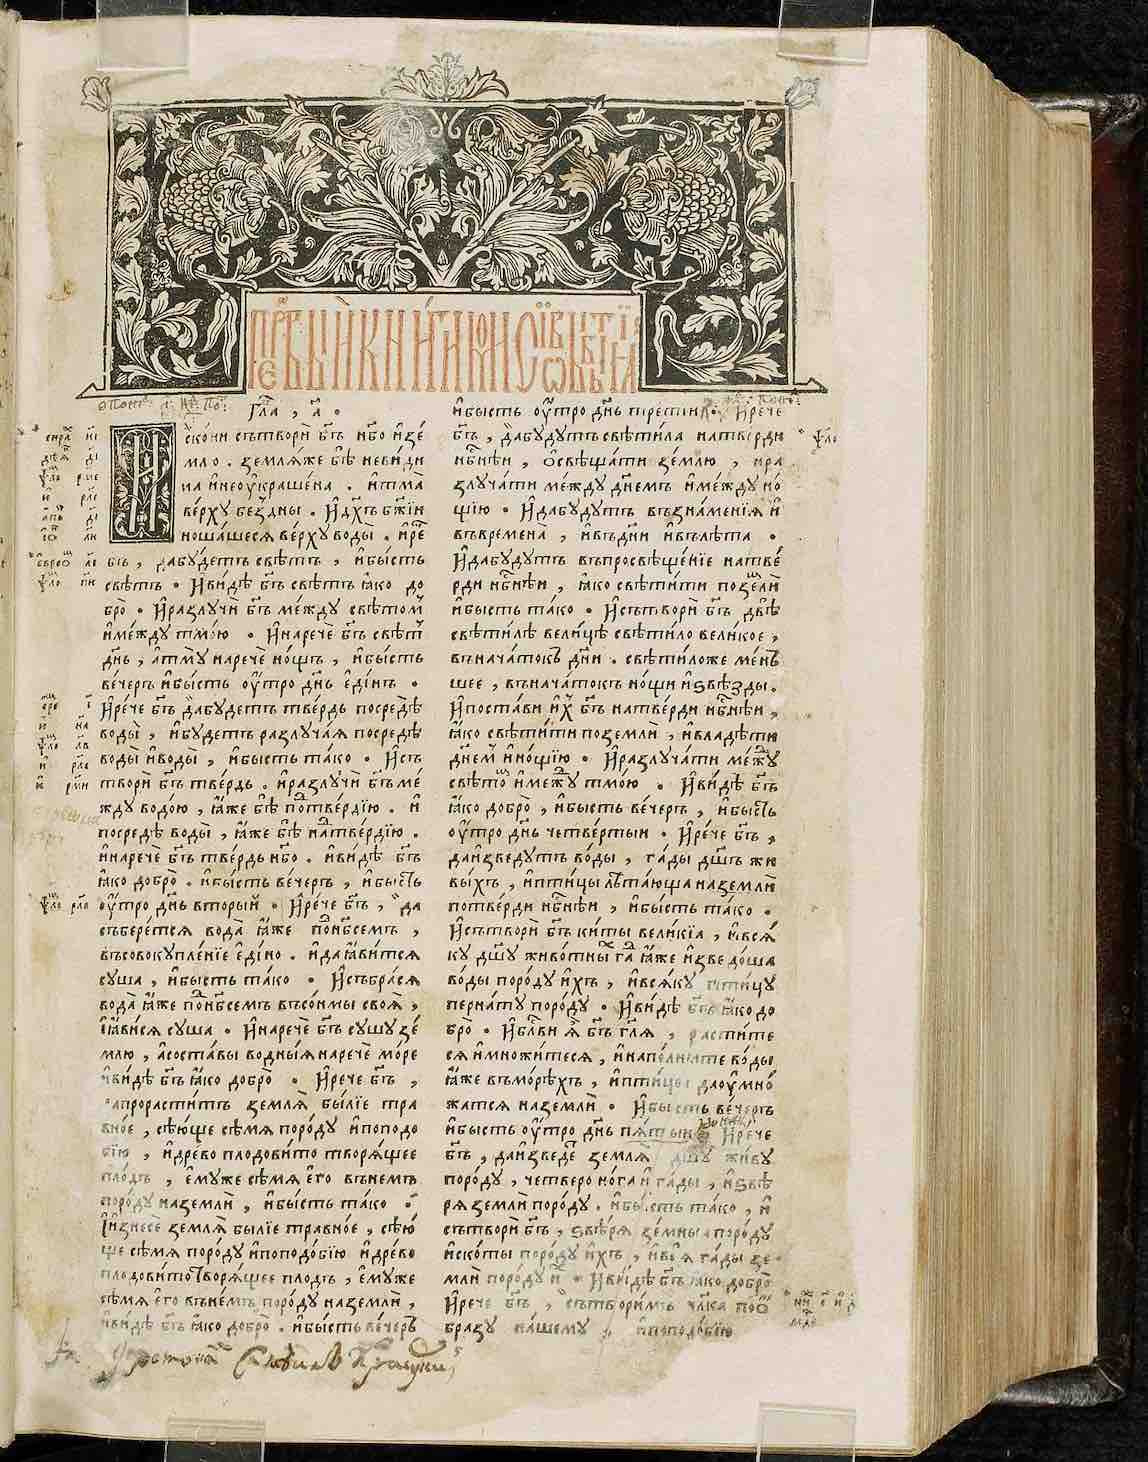 Гл҃а, а҃.
Искони сътвори бг҃ъ нб҃о и зе
мло. земля же бѣ невиди
ма и неоукрашена. и тма
верху бездны. И дх҃ъ бж҃ии
ношашеся верху воды. и ре
бг҃ъ, да будетъ свѣтъ, и бысть
свѣтъ. И видѣ бг҃ъ свѣтъ ꙗко до
бро. И разлучи бг҃ъ между свѣтом
и между тмою. И нарече бг҃ъ свѣт
дн҃ь, а тму нарече нощь, и бысть
вечеръ и бысть оутро дн҃ь единъ.
И рече бг҃ъ да будетъ твердь посредѣ
воды, и будетъ разлучая посредѣ
воды и воды, и бысть тако. И съ
твори бг҃ъ твердь. и разлучи бг҃ъ ме
жду водою, ꙗже бѣ по твердїю. и
посредѣ воды, ꙗже бѣ на твердїю.
и нарече бг҃ъ твердь нб҃о. и видѣ бг҃ъ
ꙗко добро. и бысть вечеръ, и бысть
оутро дн҃ь вторый. И рече бг҃ъ, да
съберется вода ꙗже под нб҃семъ,
въ совокупленїе едино. и да ꙗвится
суша, и бысть тако. И събрася
вода ꙗже под нб҃семъ въ сонмы своя,
и ꙗвися суша. И нарече бг҃ъ сушу зе
млю, а составы водныя нарече море
и видѣ бг҃ъ ꙗко добро. И рече бг҃ъ,
да прорастить земля былїе тра
вное, сѣюще сѣмя породу и по подо
бїю, и древо плодовито творящее
плодъ, ему же сѣмя его въ немъ
породу на земли, и бысть тако.
И изнесе земля былїе травное, сѣю
ще сѣмя породу и по подобїю и древо
плодовито творящее плодъ, ему же
сѣмя его въ немъ породу на земли,
и видѣ бг҃ъ ꙗко добро. и бысть вечеръ
и бысть оутро дн҃ь третїи. И рече
бг҃ъ, да будутъ свѣтила на тверди
нб҃нѣи, освѣщати землю, и ра
злучати между днемъ и между но
щїю. И да будутъ въ знаменїя и
въ времена, и въ дни и въ лѣта.
И да будутъ въ просвѣщенїе на тве
рди нб҃нѣи, ꙗко свѣтити по земли
и бысть тако. И сътвори бг҃ъ двѣ
свѣтилѣ велицѣ свѣтило великое,
въ начатокъ дни. свѣтило же мень
шее, въ начатокъ нощи и ѕвѣзды.
И постави их бг҃ъ на тверди нб҃нѣи,
ꙗко свѣтити по земли, и владѣти
днем и нощїю. И разлучати между
свѣтом и между тмою. И видѣ бг҃ъ
ꙗко добро, и бысть вечеръ, и бысть
оутро дн҃ь четвертыи. И рече бг҃ъ,
да изведутъ воды, гады дш҃ъ жи
выхъ, и птицы лѣтающа на земли
по тверди нб҃нѣи, и бысть тако.
И сътвори бг҃ъ киты великїа, и вся
ку дш҃у животных гад ꙗже изведоша
воды породу ихъ, и всяку птицу
пернату породу. И видѣ бг҃ъ ꙗко до
бро. И бл҃ви я бг҃ъ гл҃я, растите
ся и множитеся, и наполните воды
ꙗже въ морѣхъ, и птицы да оумно
жатся на земли. И бысть вечеръ
и бысть оутро дн҃ь пятыи. И рече
бг҃ъ, да изведе земля дш҃у живу
породу, четверонога и гады, и ѕвѣ
ря земли породу. и бысть тако, и
сътвори бг҃ъ, ѕвѣря земны породу
и скоты породу ихъ, и вся гады зе
мли породу и. И видѣ бг҃ъ ꙗко добро
И рече бг҃ъ, сътворимъ чл҃ка по о
бразу нашему и по подобїю